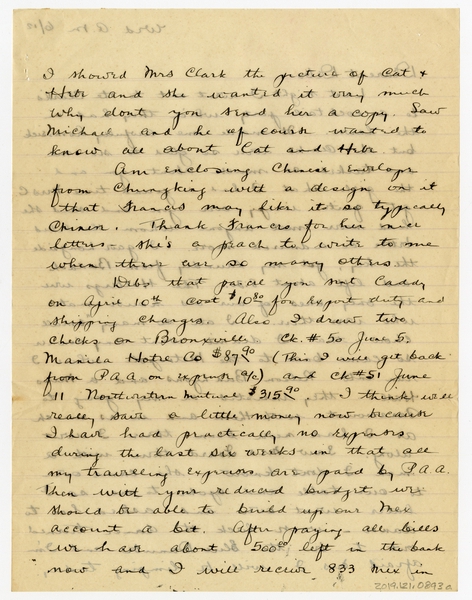 I showed Mrs Clark the picture of Cat &
Hebe and she wanted it very much
Why dont you send her a copy. Saw
Michael and he of course wanted to
know all about Cat and Hebe.
Am enclosing Chinese Envelope
from Chungking with a design on it
that Frances may like its so typically
Chinese. Thank Frances for her nice
letters - she's a peach to write to me
when there are so many others
Debs that parcel you sent Caddy
on April 10th cost $10.80 for export duty and
shipping charges. Also I drew two
checks on Bronxville Ck. #50 June 5,
Manila Hotel Co $87.90 (This I will get back
from P.A.A. on expense a/c) and ck #51 June
11 Northwestern Mutual $315.90 I think will
really save a little money now because
I have had practically no expenses
during the last six weeks in that all
my traveling expenses are paid by P.A.A.
Then with your reduced budget we
should be able to build up our Mex
account a bit. After paying all bills
we have about 500.00 left in the bank
now and I will receive 833 Mex in
2019.121.0893a